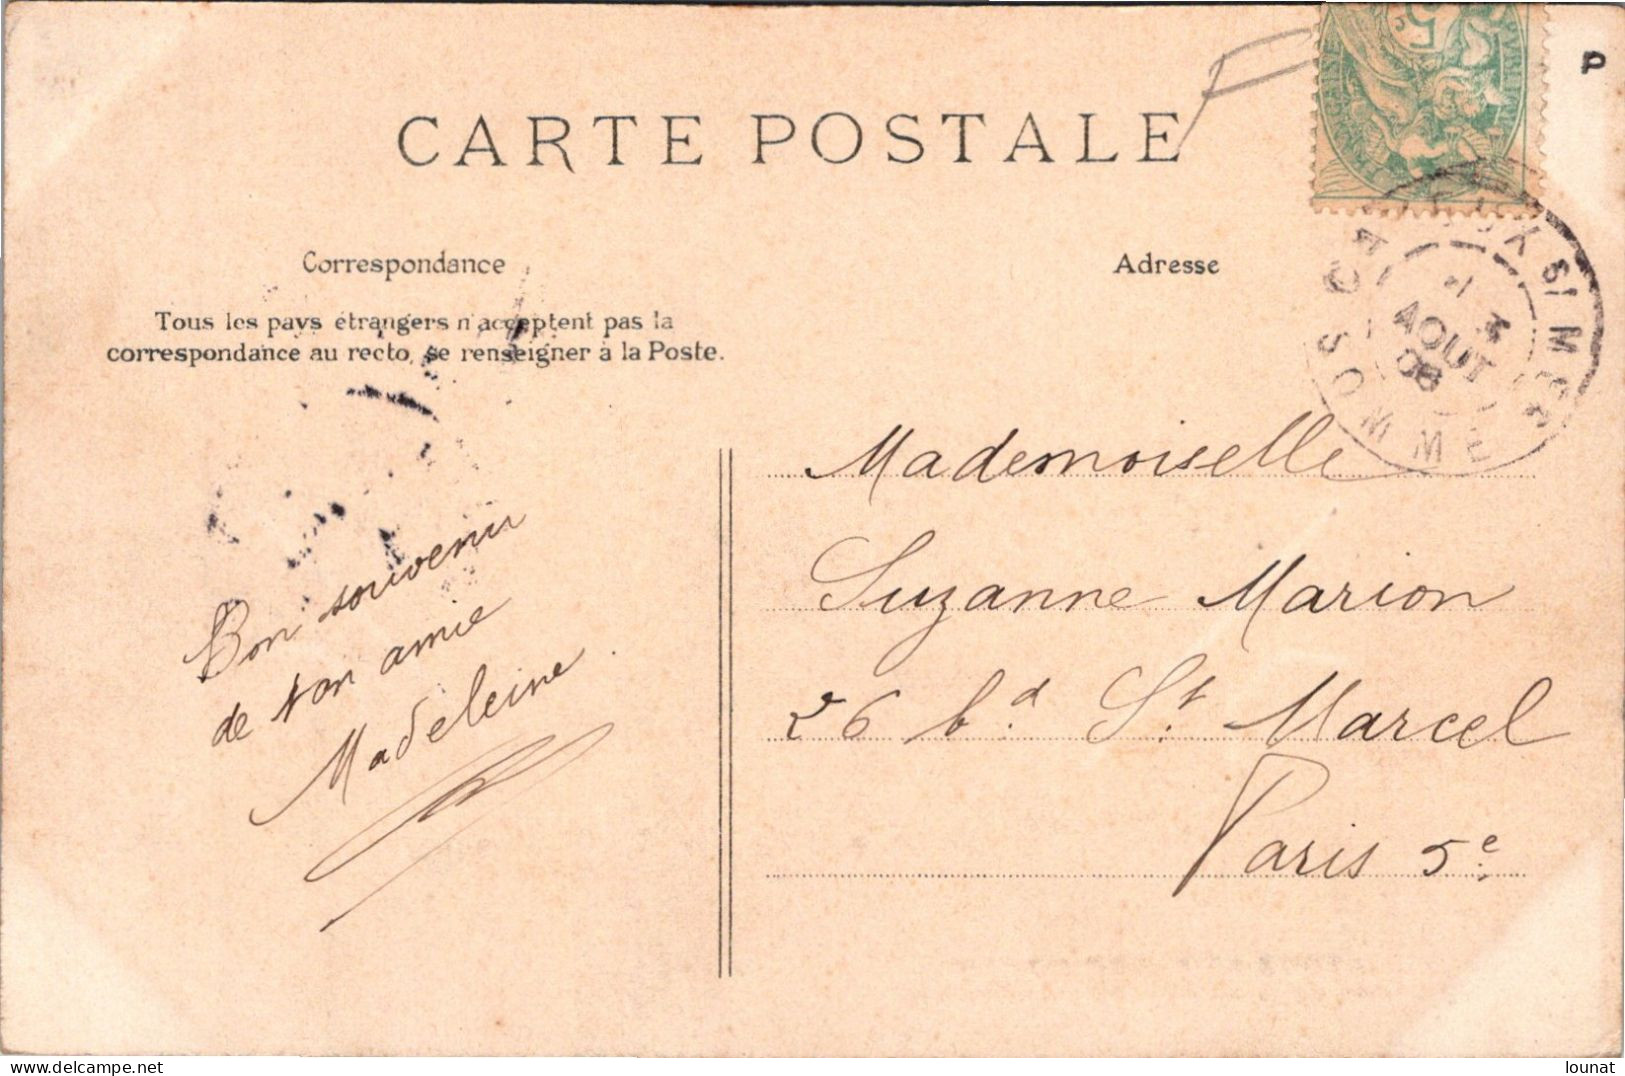 CARTE POSTALE
P
Correspondance
Adresse
Tous les pays étrangers n'acceptent pas la
correspondance au recto, se renseigner à la Poste.
AOUT
08
SOMME
Mademoiselle
Suzanne Marion
26 bd. St. Marcel
Paris 5e
Bon souvenir
de ton amie
Madeleine.
https://www.delcampe.net
lounat